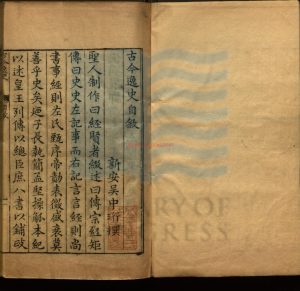 古今逸史自敘
新安吳中珩撰
聖人制作曰經賢者緒述曰傳宗經矩
傳曰史史左記事而右記言言經則尚
書事經則左氏甄序帝勣表徵盛衰莫
善乎史矣廼子長執簡孟堅操觚本紀
以述皇王列傳以總臣庶八書以鋪政
RY OF
GRESS